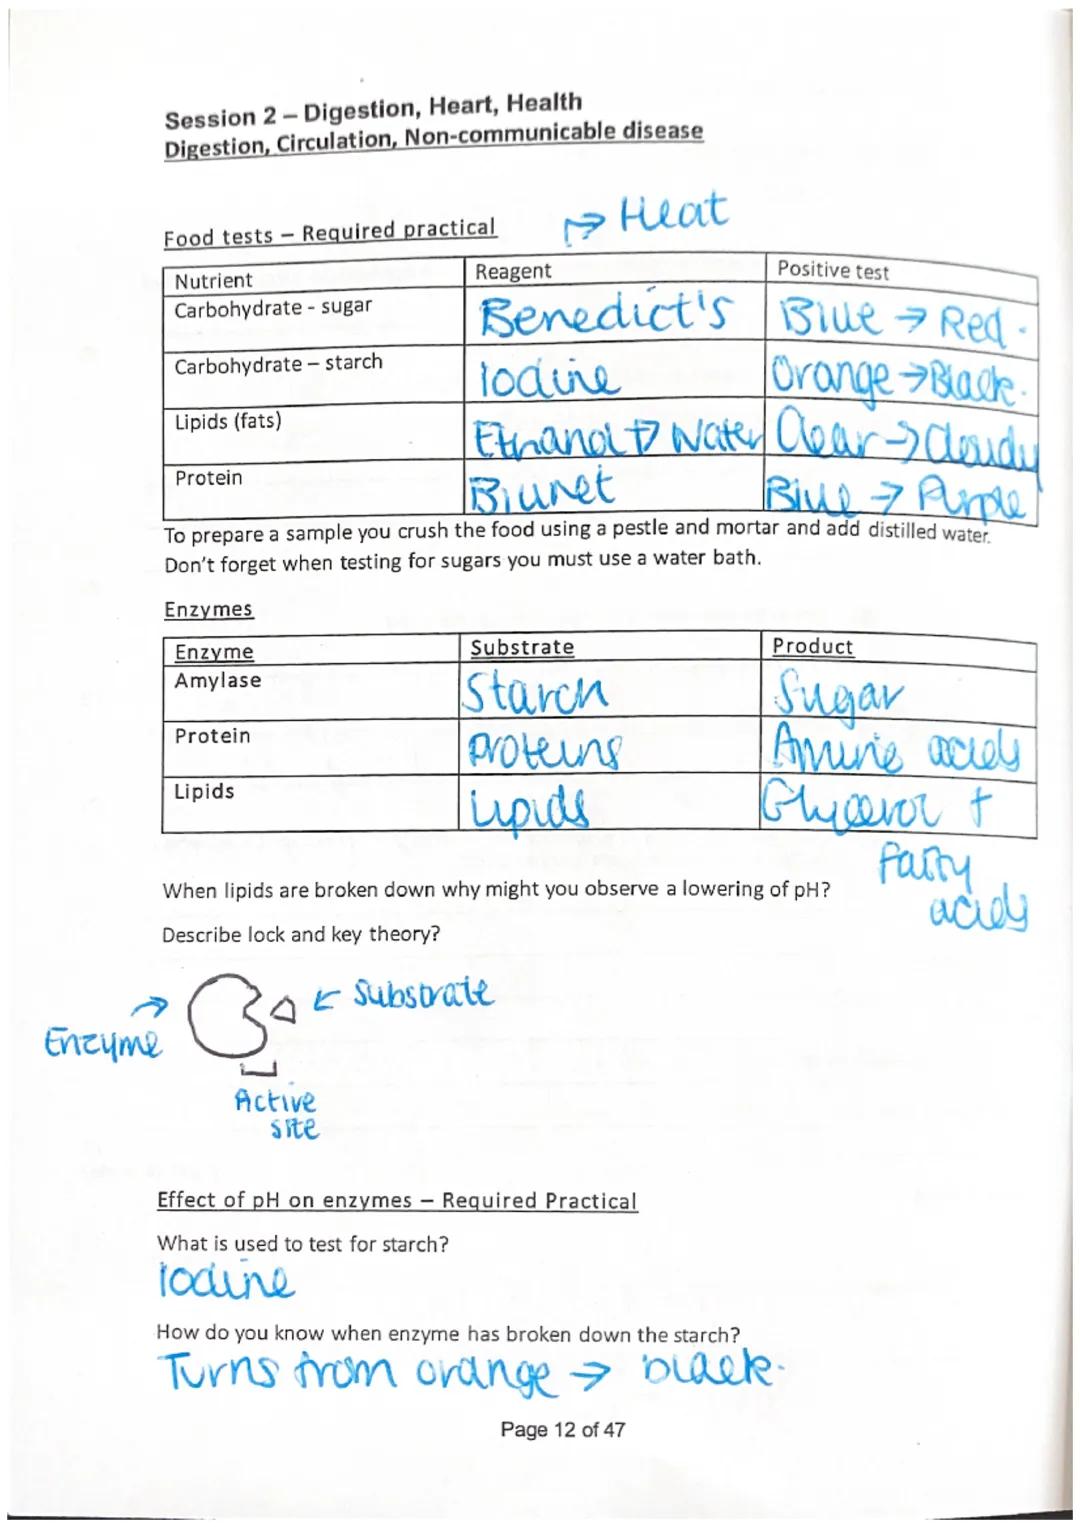 Session 2 – Digestion, Heart, Health
Digestion, Circulation, Non-communicable disease
Food tests – Required practical
→ Heat
Nutrient Reagent Positive test
Carbohydrate - sugar Benedict's Blue → Red.
Carbohydrate – starch Iodine Orange → Black.
Lipids (fats) Ethanol → Water Clear → Cloudy
Protein Biuret Blue → Purple
To prepare a sample you crush the food using a pestle and mortar and add distilled water.
Don't forget when testing for sugars you must use a water bath.
Enzymes
Enzyme Substrate Product
Amylase Starch Sugar
Protein proteins Amino acids
Lipids Lipids Glycerol +
fatty
acids
When lipids are broken down why might you observe a lowering of pH?
Describe lock and key theory?
← Substrate
→
Enzyme
Active
site
Effect of pH on enzymes – Required Practical
What is used to test for starch?
Iodine
How do you know when enzyme has broken down the starch?
Turns from orange → black.
Page 12 of 47